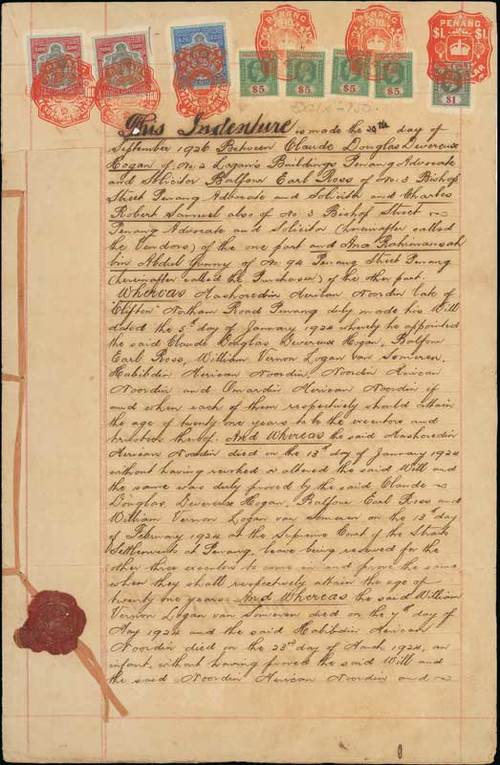 PENANG
PENANG
PENANG
$1 $1
$5 $5 $5 $5 $1
This Indenture is made the 20th day of
September 1926 Between Claude Douglas Devereux
Hogan of No. 2 Logan's Buildings Penang Advocate
and Solicitor Balfour Earl Ross of No. 3 Bishop
Street Penang Advocate and Solicitor and Charles
Robert Samuel also of No 3 Bishop Street
Penang Advocate and Solicitor (hereinafter called
the Vendors) of the one part and Ana Rahmansah
bin Abdul Gunny of No 94 Penang Street Penang
(hereinafter called the Purchaser) of the other part.
Whereas Mashoredin Merican Noordin late of
"Clifton" Northam Road Penang duly made his Will
dated the 5th day of January 1924 whereby he appointed
the said Claude Douglas Devereux Hogan, Balfour
Earl Ross, William Vernon Logan van Someren,
Habibdin Merican Noordin, Noordin Merican
Noordin and Omardin Merican Noordin if
and when each of them respectively should attain
the age of twenty one years to be the executors and
trustees thereof. And Whereas the said Mashoredin
Merican Noordin died on the 13th day of January 1924
without having revoked or altered the said Will and
the same was duly proved by the said Claude
Douglas Devereux Hogan, Balfour Earl Ross and
William Vernon Logan van Someren on the 13th day
of February 1924 at the Supreme Court of the Straits
Settlements at Penang, leave being reserved for the
other three executors to come in and prove the same
when they shall respectively attain the age of
twenty one years. And Whereas the said William
Vernon Logan van Someren died on the 7th day of
May 1924 and the said Habibdin Merican
Noordin died on the 23rd day of March 1924, an
infant, without having proved the said Will and
the said Noordin Merican Noordin and